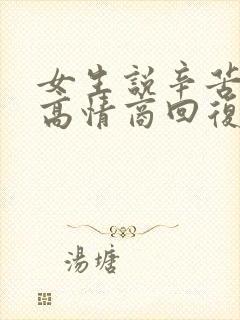 女生說辛苦
高情商回復
湯塘